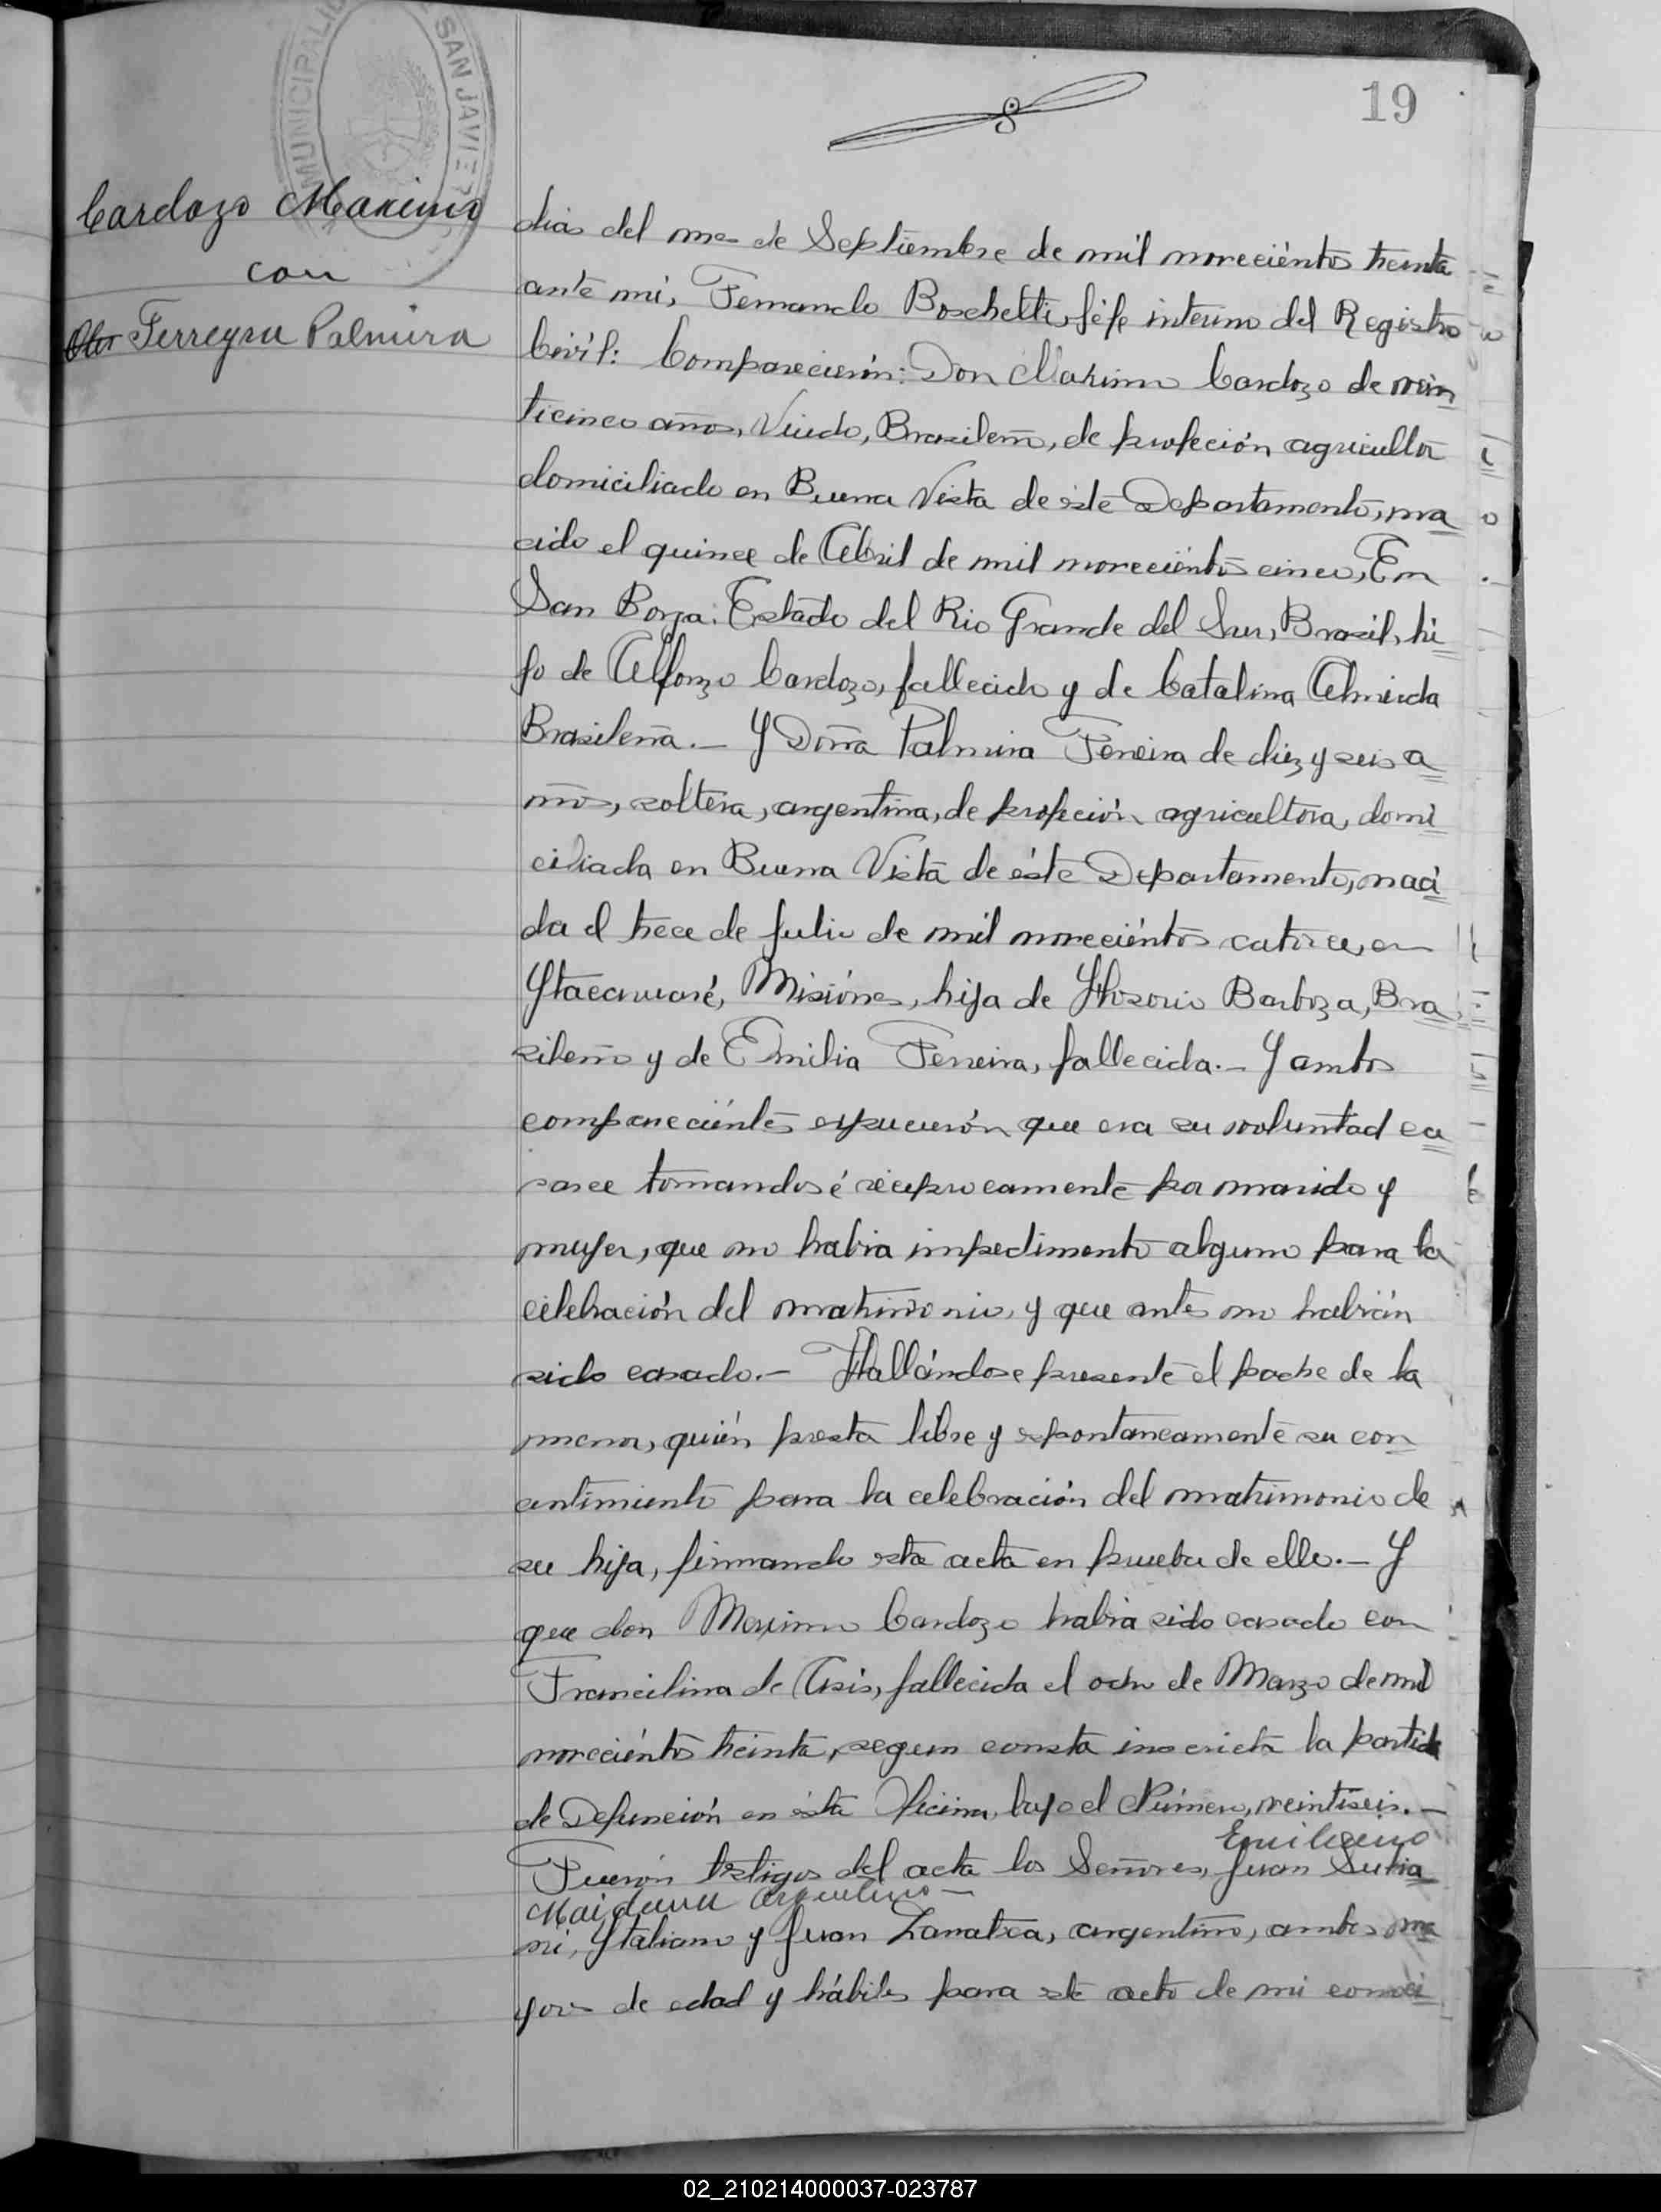 MUNICIPALIDAD DE SAN JAVIER
19
Cardozo Maximo
con
Ferreyra Palmira
dias del mes de Septiembre de mil noveciéntos treinta
ante mi, Fernando Boschetti, Jéfe interino del Registro
Civíl: Comparecierón: Don Maximo Cardozo de vein
ticinco años, Viudo, Brasileño, de profeción agricultor
domiciliado en Buena Vista de éste Departamento, na
cido el quince de Abril de mil noveciéntos cinco, En
San Borja: Estado del Rio Grande del Sur, Brasil, hi
jo de Alfonzo Cardozo, fallecido y de Catalina Almeida
Brasileña.— Y Doña Palmira Ferreira de diez y seis a
ños, soltera, argentina, de profeción agricultora, domi
ciliada en Buena Vista de éste Departamento, naci
da el trece de Julio de mil noveciéntos catorce, en
Ytacaruaré, Misiónes, hija de Hosorio Barboza, Bra
sileño y de Emilia Ferreira, fallecida.— Y ambos
compareciéntes que era su voluntad ca
sarce tomandosé reciprocamente por marido y
mujer, que no habia impedimento alguno para la
celebración del matrimonio, y que antes no habián
sido casado.— Hallándose presente el padre de la
menor, quién presta libre y espontaneamente su con
centimiento para la celebración del matrimonio de
su hija, firmando esta acta en prueba de ello.— Y
que don Maximo Cardozo habia sido casado con
Francilina de Asis, fallecida el ocho de Marzo de mil
noveciéntos treinta, segun consta inscricta la partida
de Defunción en ésta Oficina, bajo el Número, veintiseis.—
Fuerón testigos del acta los Señores, Juan Sutia
Maidana argentino —
ni, Ytaliano y Juan Zanatta, argentino, ambos ma
yores de edad y hábiles para este acto de mi conoci
02_210214000037-023787